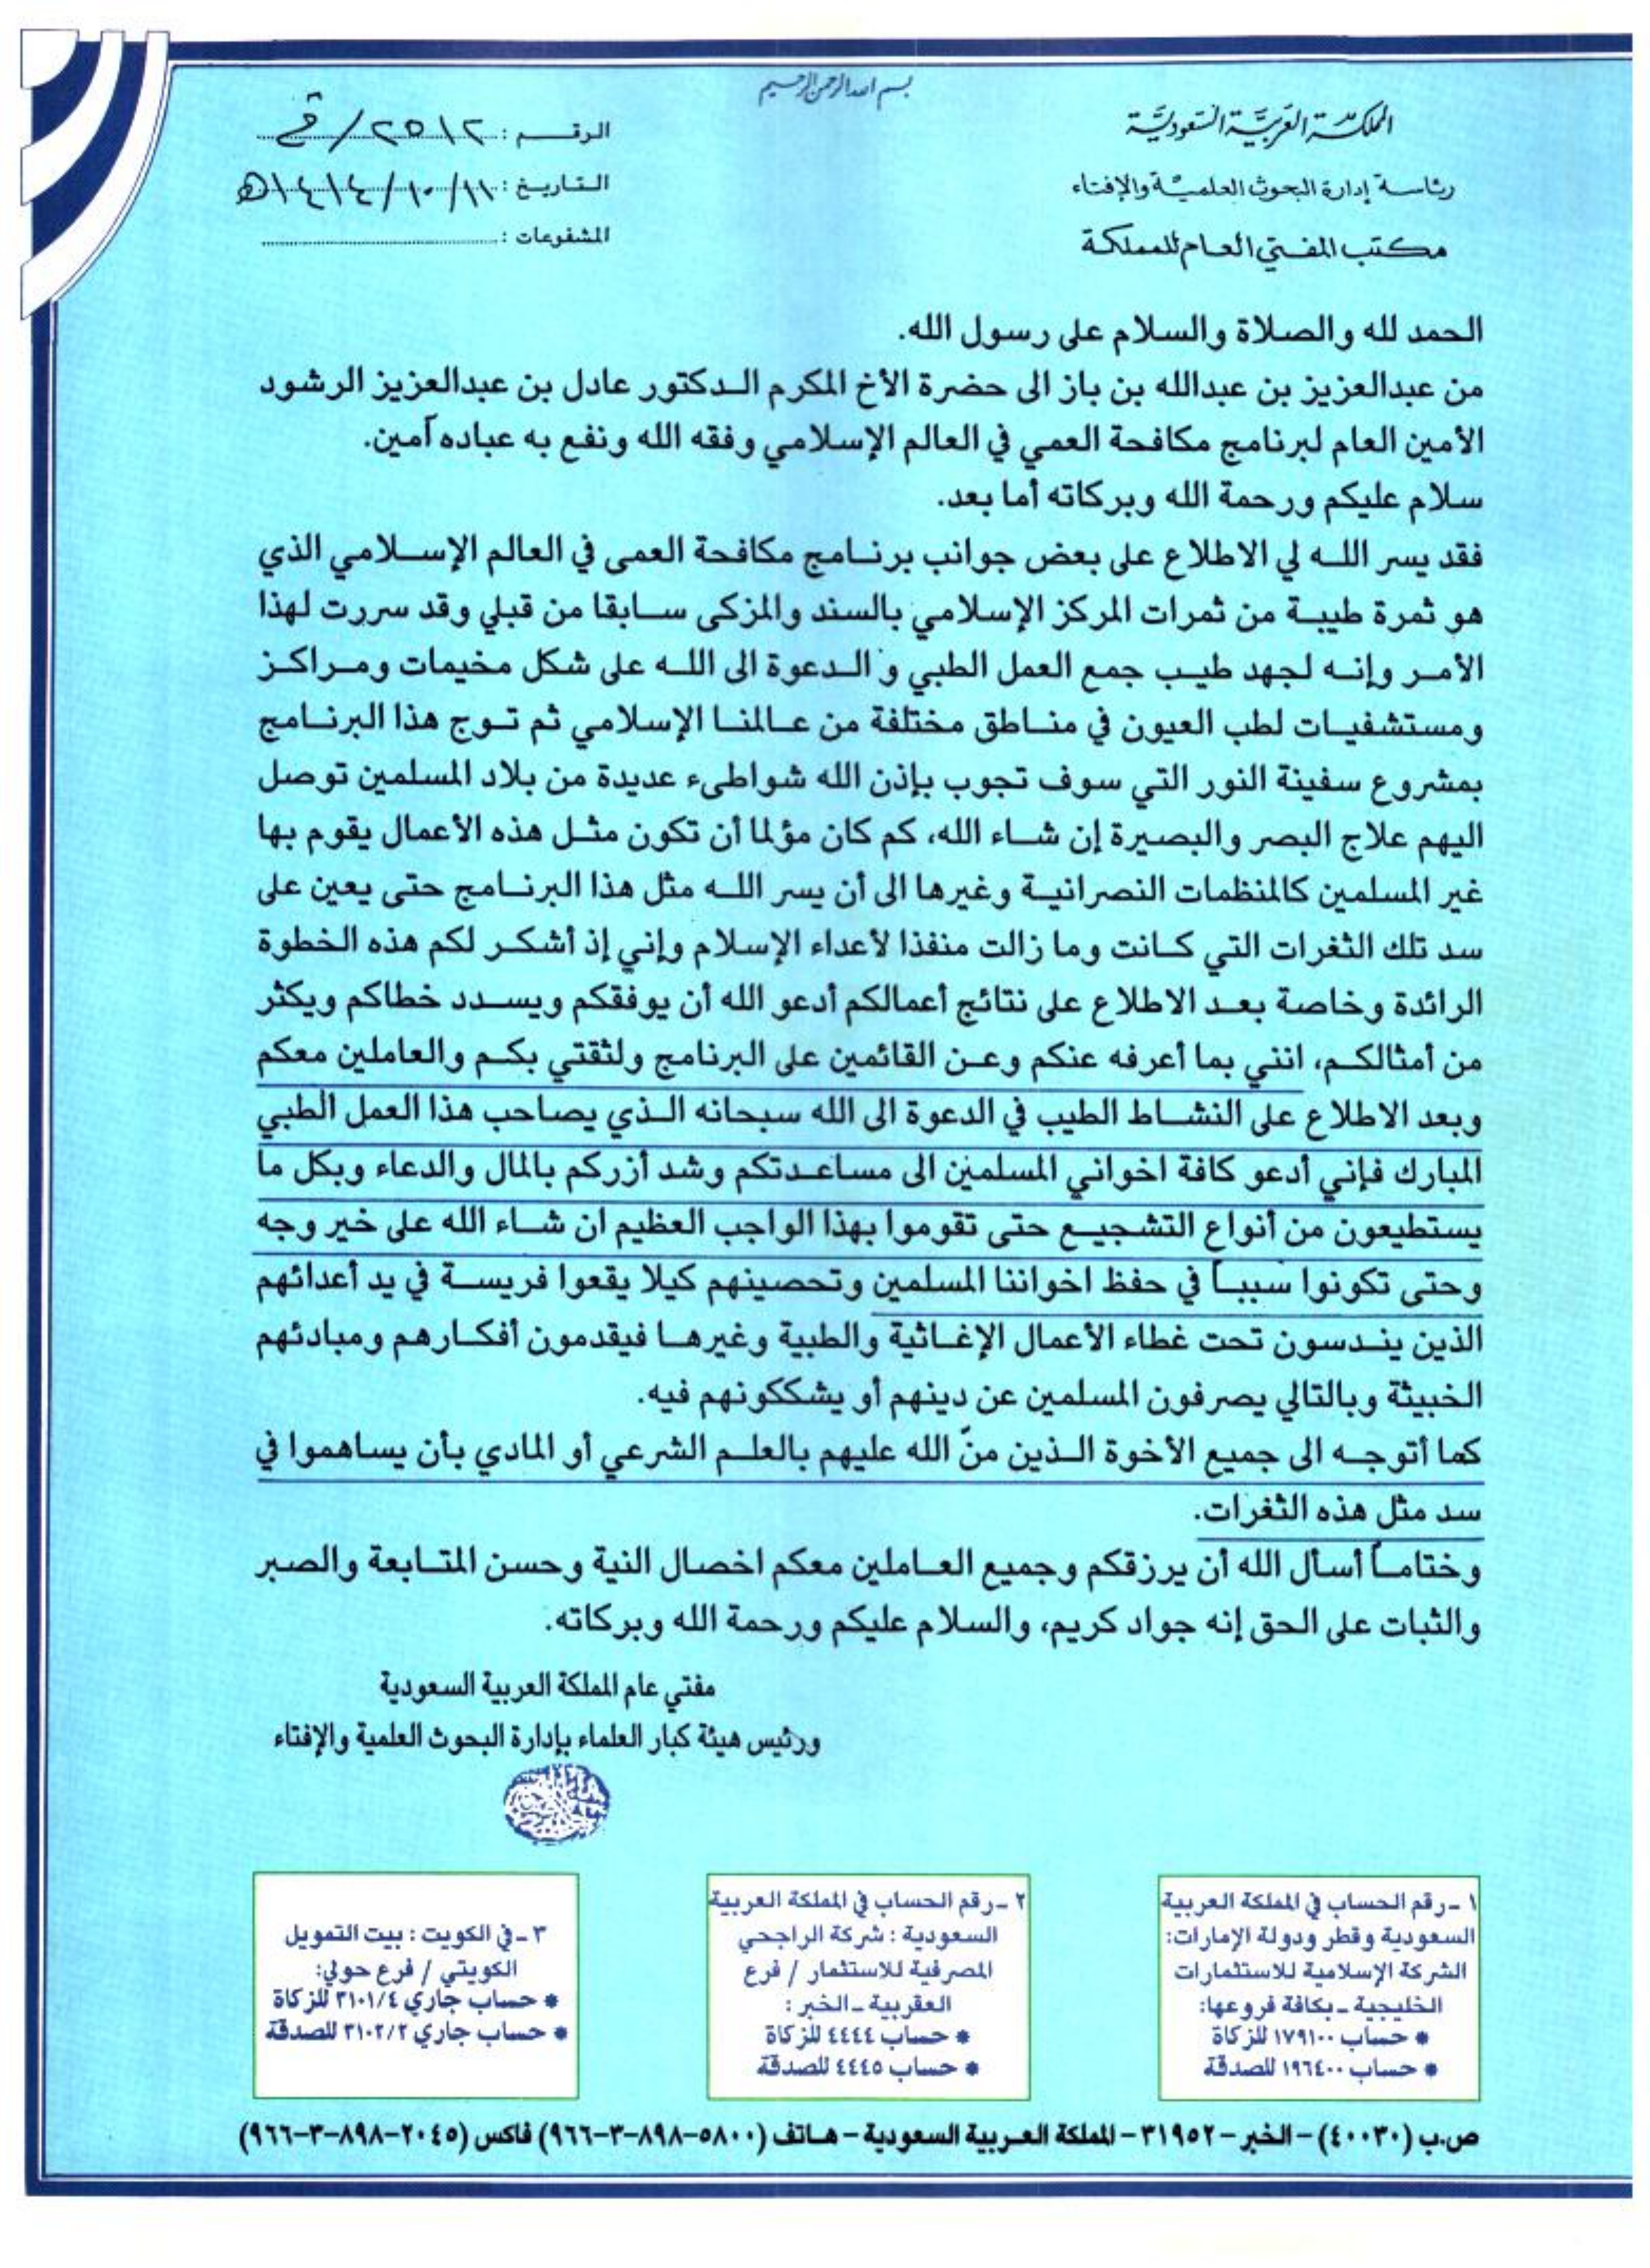 بسم الله الرحمن الرحيم
المملكة العربية السعودية
رئاسة إدارة البحوث العلمية والإفتاء
مكتب المفتي العام للمملكة
الرقم : ٢٥١٢/خ
التاريخ : ١٤١٤/١٠/١١هـ
المشفوعات :
الحمد لله والصلاة والسلام على رسول الله.
من عبدالعزيز بن عبدالله بن باز الى حضرة الأخ المكرم الدكتور عادل بن عبدالعزيز الرشود
الأمين العام لبرنامج مكافحة العمي في العالم الإسلامي وفقه الله ونفع به عباده آمين.
سلام عليكم ورحمة الله وبركاته أما بعد.
فقد يسر الله لي الاطلاع على بعض جوانب برنامج مكافحة العمى في العالم الإسلامي الذي
هو ثمرة طيبة من ثمرات المركز الإسلامي بالسند والمزكى سابقا من قبلي وقد سررت لهذا
الأمر وإنه لجهد طيب جمع العمل الطبي و الدعوة الى الله على شكل مخيمات ومراكز
ومستشفيات لطب العيون في مناطق مختلفة من عالمنا الإسلامي ثم توج هذا البرنامج
بمشروع سفينة النور التي سوف تجوب بإذن الله شواطىء عديدة من بلاد المسلمين توصل
اليهم علاج البصر والبصيرة إن شاء الله، كم كان مؤلما أن تكون مثل هذه الأعمال يقوم بها
غير المسلمين كالمنظمات النصرانية وغيرها الى أن يسر الله مثل هذا البرنامج حتى يعين على
سد تلك الثغرات التي كانت وما زالت منفذا لأعداء الإسلام وإني إذ أشكر لكم هذه الخطوة
الرائدة وخاصة بعد الاطلاع على نتائج أعمالكم أدعو الله أن يوفقكم ويسدد خطاكم ويكثر
من أمثالكم، انني بما أعرفه عنكم وعن القائمين على البرنامج ولثقتي بكم والعاملين معكم
وبعد الاطلاع على النشاط الطيب في الدعوة الى الله سبحانه الذي يصاحب هذا العمل الطبي
المبارك فإني أدعو كافة اخواني المسلمين الى مساعدتكم وشد أزركم بالمال والدعاء وبكل ما
يستطيعون من أنواع التشجيع حتى تقوموا بهذا الواجب العظيم ان شاء الله على خير وجه
وحتى تكونوا سببا في حفظ اخواننا المسلمين وتحصينهم كيلا يقعوا فريسة في يد أعدائهم
الذين يندسون تحت غطاء الأعمال الإغاثية والطبية وغيرها فيقدمون أفكارهم ومبادئهم
الخبيثة وبالتالي يصرفون المسلمين عن دينهم أو يشككونهم فيه.
كما أتوجه الى جميع الأخوة الذين منّ الله عليهم بالعلم الشرعي أو المادي بأن يساهموا في
سد مثل هذه الثغرات.
وختاماً أسأل الله أن يرزقكم وجميع العاملين معكم اخصال النية وحسن المتابعة والصبر
والثبات على الحق إنه جواد كريم، والسلام عليكم ورحمة الله وبركاته.
مفتي عام المملكة العربية السعودية
ورئيس هيئة كبار العلماء بإدارة البحوث العلمية والإفتاء
١ - رقم الحساب في المملكة العربية
السعودية وقطر ودولة الإمارات:
الشركة الإسلامية للاستثمارات
الخليجية - بكافة فروعها:
* حساب ١٧٩١٠٠ للزكاة
* حساب ١٩٦٤٠٠ للصدقة
٢ - رقم الحساب في المملكة العربية
السعودية : شركة الراجحي
المصرفية للاستثمار / فرع
العقربية - الخبر :
* حساب ٤٤٤٤ للزكاة
* حساب ٤٤٤٥ للصدقة
٣ - في الكويت : بيت التمويل
الكويتي / فرع حولي:
* حساب جاري ٣١٠١/٤ للزكاة
* حساب جاري ٣١٠٢/٢ للصدقة
ص.ب (٤٠٠٣٠) - الخبر - ٣١٩٥٢ - المملكة العربية السعودية - هاتف (٥٨٠٠-٨٩٨-٣-٩٦٦) فاكس (٢٠٤٥-٨٩٨-٣-٩٦٦)